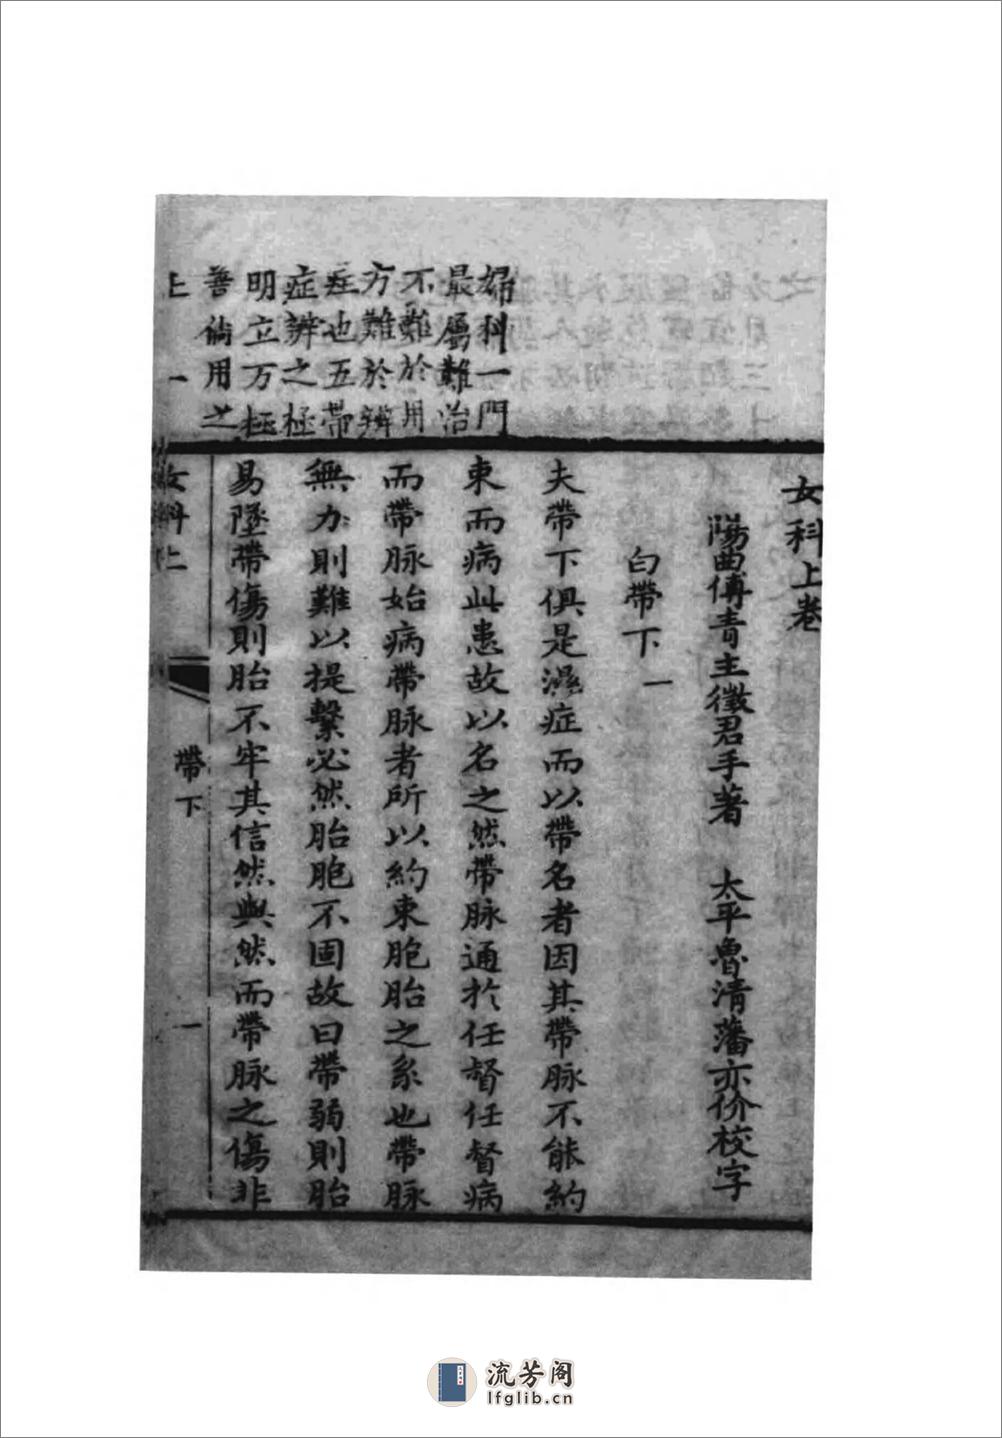 女科上卷
陽曲傅青主徵君手著　太平魯清藩亦价校字
白帶下 一
夫帶下俱是濕症而以帶名者因其帶脉不能約
束而病此患故以名之然帶脉通於任督任督病
而帶脉始病帶脉者所以約束胞胎之系也帶脉
無力則難以提繫必然胎胞不固故曰帶弱則胎
易墜帶傷則胎不牢其信然與然而帶脉之傷非
婦科一門
最屬難治
不難於用
方難於辨
症也五帶
症辨之極
明立方極
善倘用之
上 一
女科上
帶下
一
流芳阁
lfglib.cn